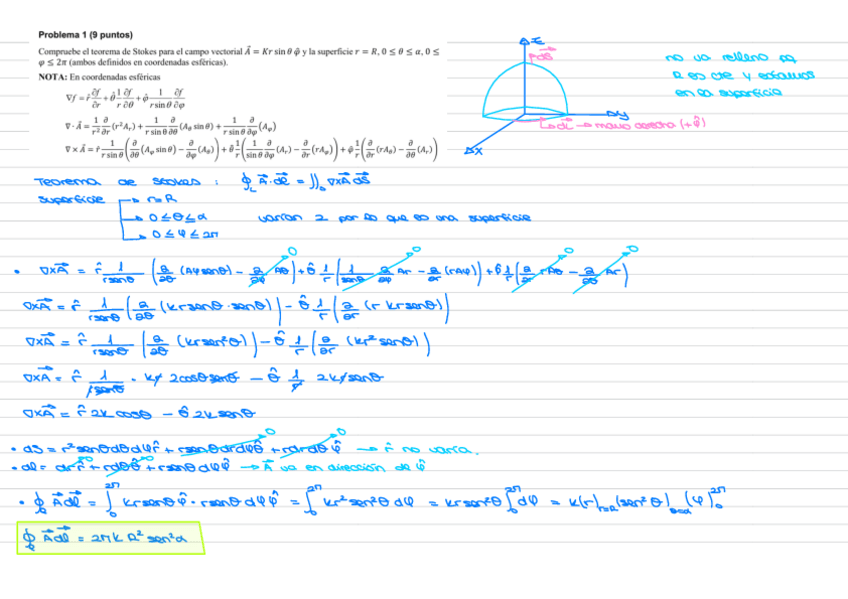 Problema 1 (9 puntos)
Compruebe el teorema de Stokes para el campo vectorial $\vec{A} = Kr \sin\theta\, \hat{\varphi}$ y la superficie $r = R, 0 \le \theta \le \alpha, 0 \le$
$\varphi \le 2\pi$ (ambos definidos en coordenadas esféricas).
NOTA: En coordenadas esféricas
$\nabla f = \hat{r}\frac{\partial f}{\partial r} + \hat{\theta}\frac{1}{r}\frac{\partial f}{\partial \theta} + \hat{\varphi}\frac{1}{r\sin\theta}\frac{\partial f}{\partial \varphi}$
$\nabla \cdot \vec{A} = \frac{1}{r^2}\frac{\partial}{\partial r}(r^2 A_r) + \frac{1}{r\sin\theta}\frac{\partial}{\partial \theta}(A_\theta \sin\theta) + \frac{1}{r\sin\theta}\frac{\partial}{\partial \varphi}(A_\varphi)$
$\nabla \times \vec{A} = \hat{r}\frac{1}{r\sin\theta}\left(\frac{\partial}{\partial \theta}(A_\varphi \sin\theta) - \frac{\partial}{\partial \varphi}(A_\theta)\right) + \hat{\theta}\frac{1}{r}\left(\frac{1}{\sin\theta}\frac{\partial}{\partial \varphi}(A_r) - \frac{\partial}{\partial r}(rA_\varphi)\right) + \hat{\varphi}\frac{1}{r}\left(\frac{\partial}{\partial r}(rA_\theta) - \frac{\partial}{\partial \theta}(A_r)\right)$
Z
dS
Y
X
dL → mano derecha (+φ̂)
no va relleno xq
R es cte y estamos
en la superficie
Teorema de Stokes : $\oint_L \vec{A} \cdot \vec{dl} = \iint_S \nabla \times \vec{A}\, \vec{dS}$
superficie → r=R
→ 0≤θ≤α varían 2 por lo que es una superficie
→ 0≤φ≤2π
• $\nabla \times \vec{A} = \hat{r}\frac{1}{r sen\theta}\left(\frac{\partial}{\partial \theta}(A\varphi sen\theta) - \frac{\partial}{\partial \varphi}A\theta\right) + \hat{\theta}\frac{1}{r}\left(\frac{1}{sen\theta}\frac{\partial}{\partial \varphi}Ar - \frac{\partial}{\partial r}(rA\varphi)\right) + \hat{\varphi}\frac{1}{r}\left(\frac{\partial}{\partial r}rA\theta - \frac{\partial}{\partial \theta}Ar\right)$
$\nabla \times \vec{A} = \hat{r}\frac{1}{r sen\theta}\left(\frac{\partial}{\partial \theta}(kr sen\theta \cdot sen\theta)\right) - \hat{\theta}\frac{1}{r}\left(\frac{\partial}{\partial r}(r\, kr sen\theta)\right)$
$\nabla \times \vec{A} = \hat{r}\frac{1}{r sen\theta}\left(\frac{\partial}{\partial \theta}(kr sen^2\theta)\right) - \hat{\theta}\frac{1}{r}\left(\frac{\partial}{\partial r}(kr^2 sen\theta)\right)$
$\nabla \times \vec{A} = \hat{r}\frac{1}{r sen\theta} \cdot kr\, 2cos\theta sen\theta - \hat{\theta}\frac{1}{r}\, 2kr sen\theta$
$\nabla \times \vec{A} = \hat{r}\, 2k cos\theta - \hat{\theta}\, 2k sen\theta$
• $dS = r^2 sen\theta d\theta d\varphi \hat{r} + r sen\theta dr d\varphi \hat{\theta} + r dr d\theta \hat{\varphi}$ → r̂ no varía.
• $dl = dr\hat{r} + r d\theta \hat{\theta} + r sen\theta d\varphi \hat{\varphi}$ → $\vec{A}$ va en dirección de φ̂
• $\oint_L \vec{A}\,\vec{dl} = \int_0^{2\pi} kr sen\theta \hat{\varphi} \cdot r sen\theta d\varphi \hat{\varphi} = \int_0^{2\pi} kr^2 sen^2\theta d\varphi = kr sen^2\theta \int_0^{2\pi} d\varphi = k(r)_{r=R}(sen^2\theta)_{\theta=\alpha}(\varphi)_0^{2\pi}$
$\oint_L \vec{A}\,\vec{dl} = 2\pi k R^2 sen^2\alpha$